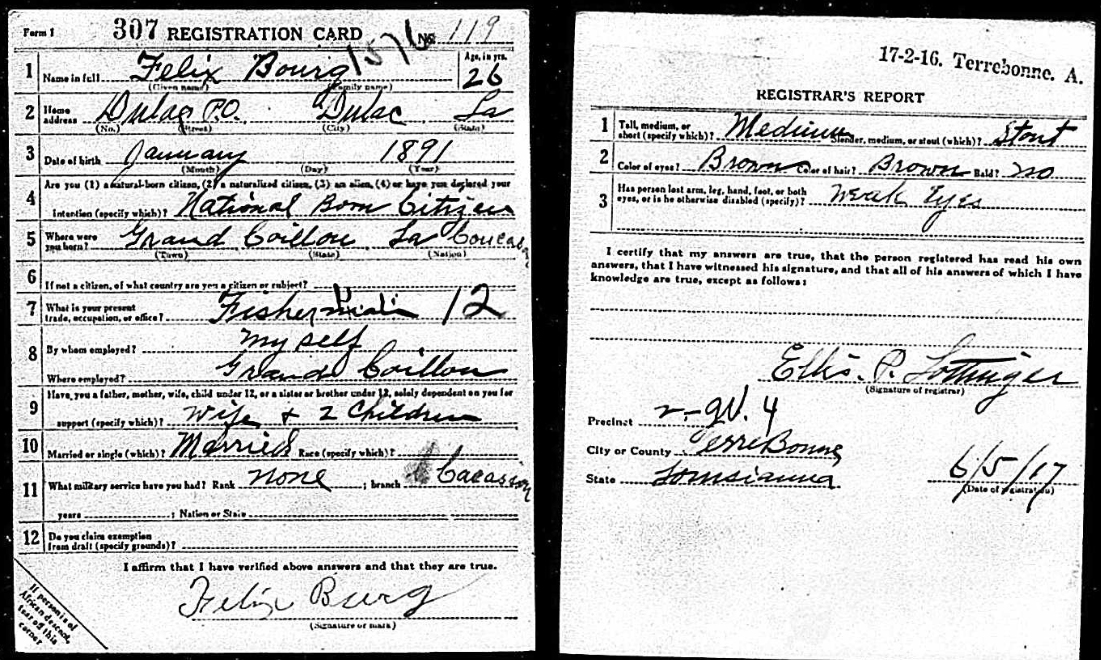 Form 1 307 REGISTRATION CARD 1576 No. 119
1 Name in full Felix Bourg Age, in yrs. 26
(Given name) (Family name)
2 Home address Dulac P.O. Dulac La
(No.) (Street) (City) (State)
3 Date of birth January 1891
(Month) (Day) (Year)
4 Are you (1) a natural-born citizen, (2) a naturalized citizen, (3) an alien, (4) or have you declared your
intention (specify which)? National Born Citizen
5 Where were you born? Grand Caillou La Coucasn
(Town) (State) (Nation)
6 If not a citizen, of what country are you a citizen or subject?
7 What is your present trade, occupation, or office? Fisherman 12
8 By whom employed? my self
Where employed? Grand Caillou
9 Have you a father, mother, wife, child under 12, or a sister or brother under 12, solely dependent on you for
support (specify which)? wife + 2 Children
10 Married or single (which)? Married Race (specify which)?
Cacasion
11 What military service have you had? Rank none ; branch
years ; Nation or State
12 Do you claim exemption from draft (specify grounds)?
I affirm that I have verified above answers and that they are true.
Felix Burg
(Signature or mark)
If person is of
African descent,
tear off this
corner
17-2-16. Terrebonne. A.
REGISTRAR'S REPORT
1 Tall, medium, or short (specify which)? Medium Slender, medium, or stout (which)? Stout
2 Color of eyes? Brown Color of hair? Brown Bald? no
3 Has person lost arm, leg, hand, foot, or both eyes, or is he otherwise disabled (specify)? Weak Eyes
I certify that my answers are true, that the person registered has read his own
answers, that I have witnessed his signature, and that all of his answers of which I have
knowledge are true, except as follows:
Ellis. P. Lottinger
(Signature of registrar)
Precinct 4
City or County TerreBonne
State Louisianna 6/5/17
(Date of registration)